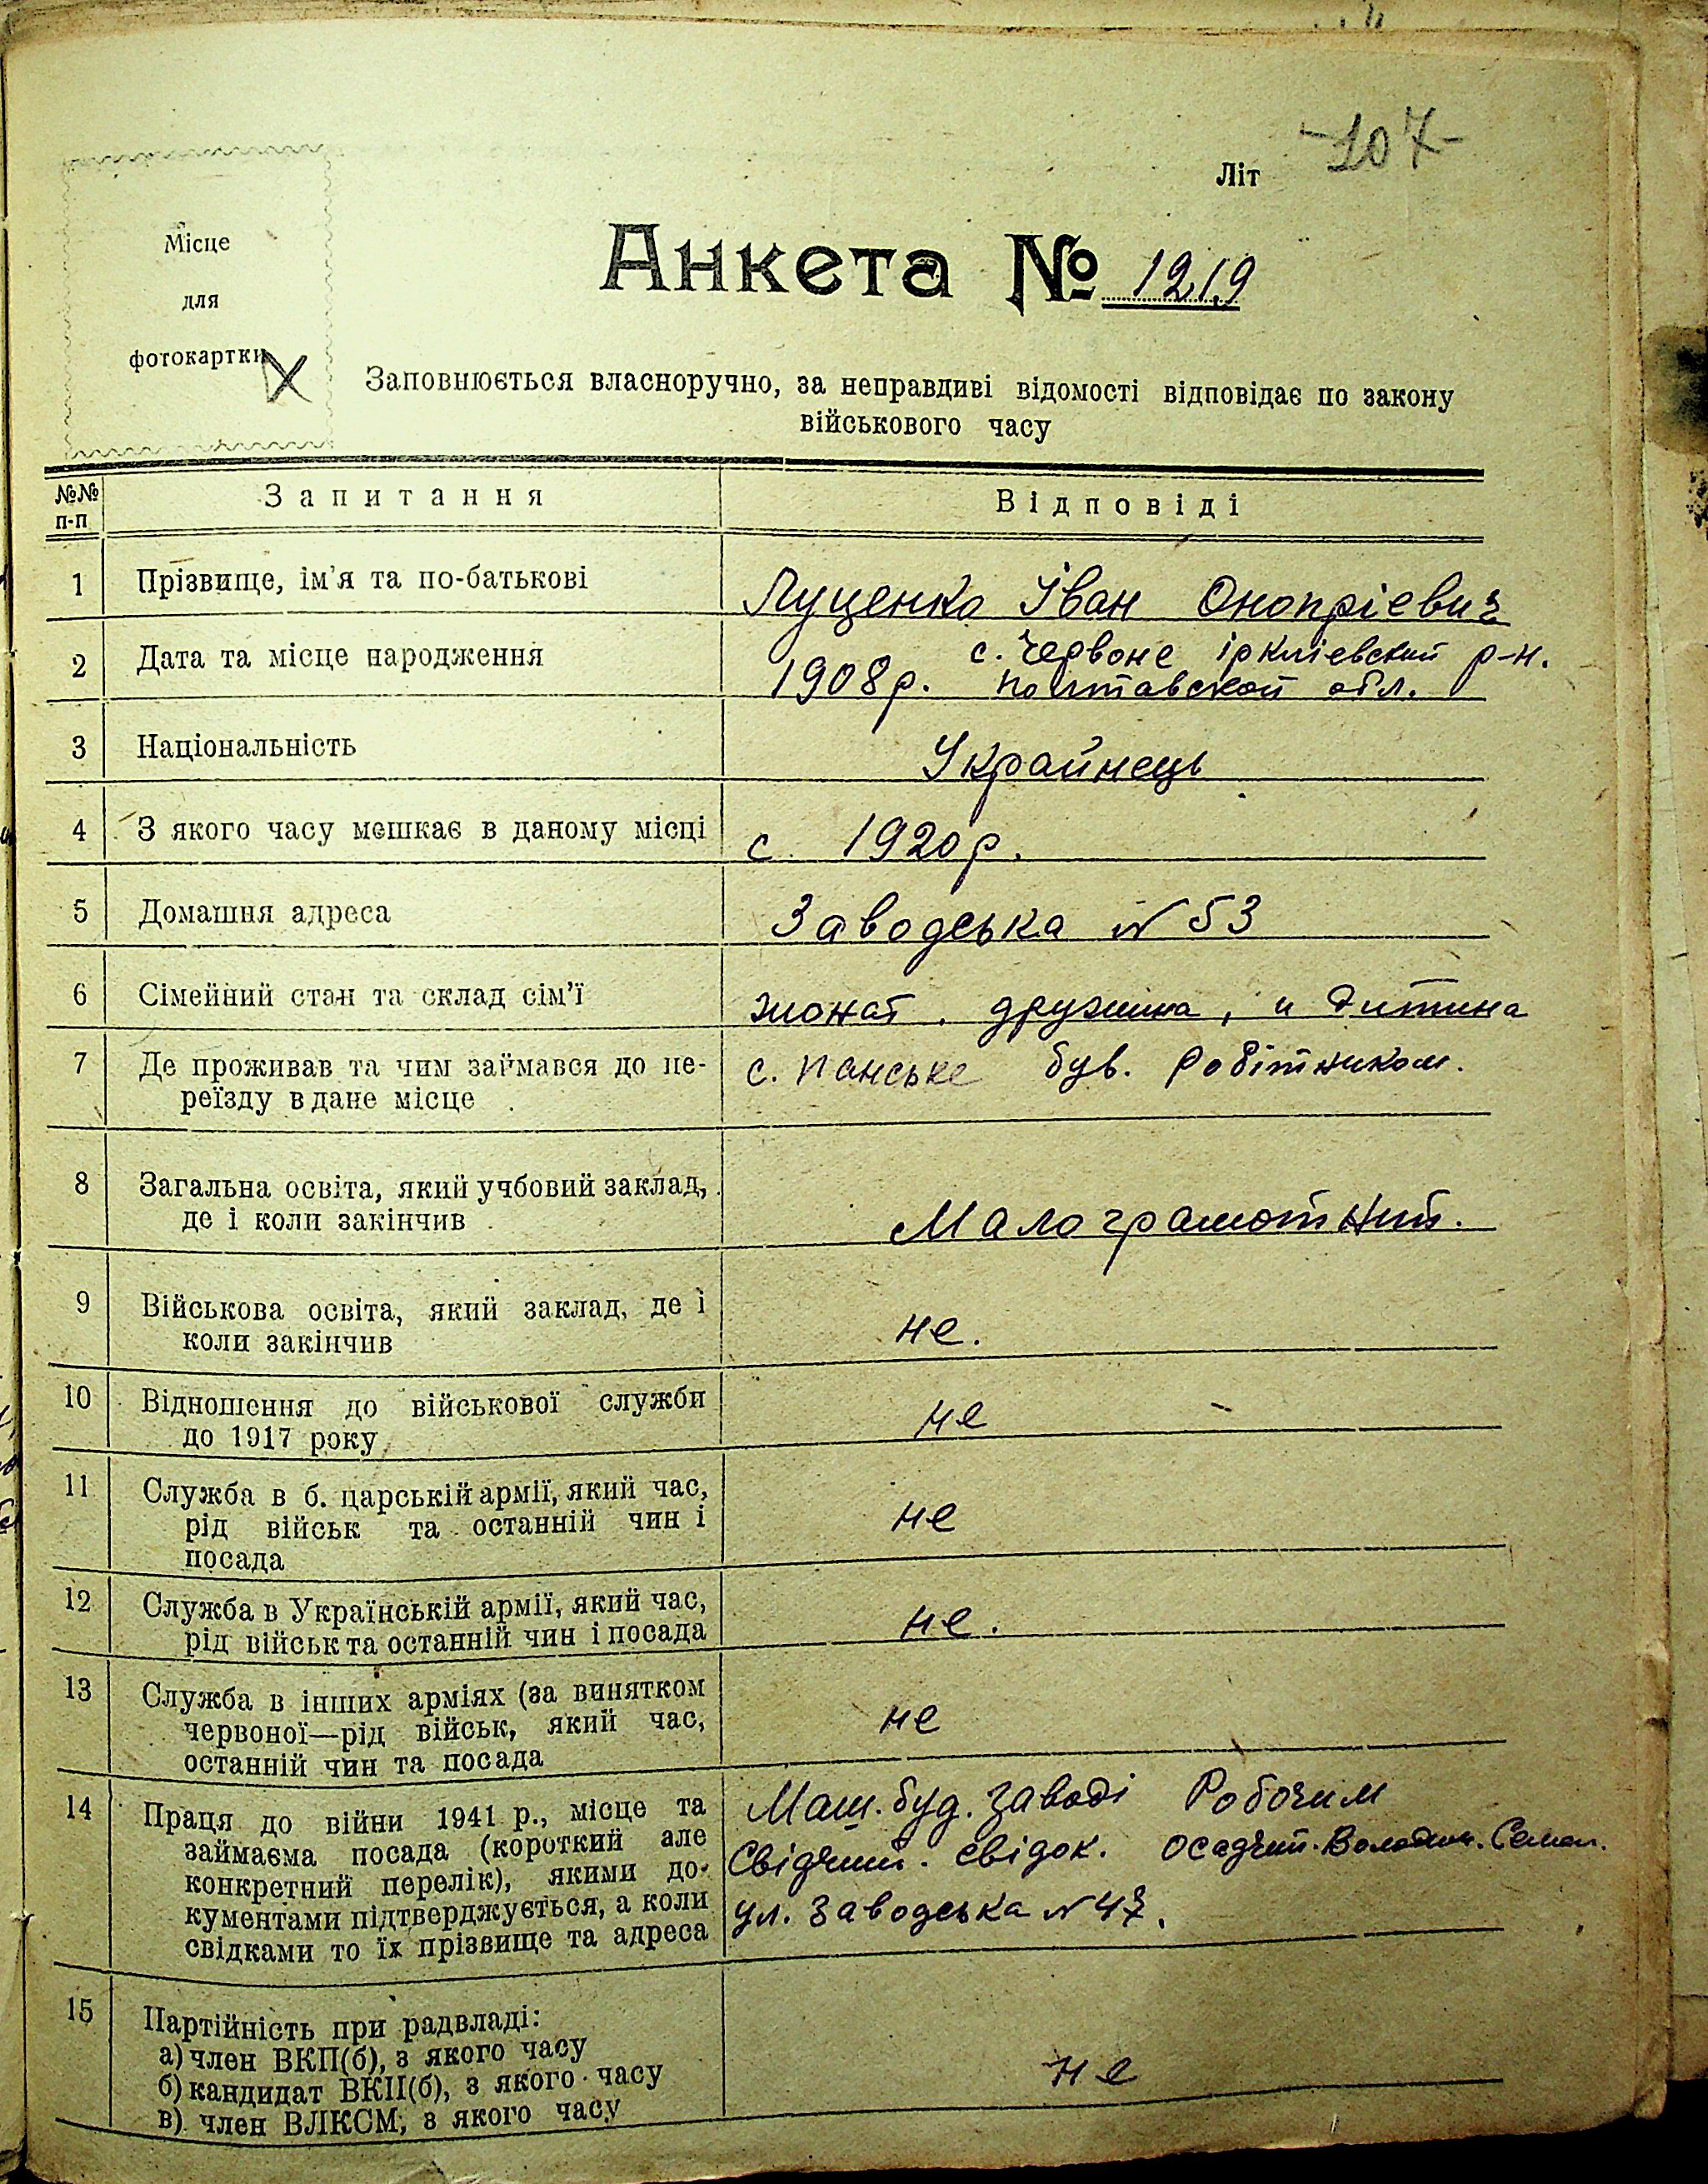 -107-
Літ
Місце
для
фотокартки
Анкета № 1219
Заповнюється власноручно, за неправдиві відомості відповідає по закону
військового часу
№№ п-п Запитання Відповіді
1 Прізвище, ім'я та по-батькові Луценко Іван Онопріевич
2 Дата та місце народження 1908р. с. Червоне іркліевский р-н.
полтавской обл.
3 Національність Украйнець
4 З якого часу мешкає в даному місці с 1920р.
5 Домашня адреса Заводська N 53
6 Сімейний стан та склад сім'ї жонат. дружина, и дитина
7 Де проживав та чим займався до пе-
реїзду в дане місце с. Панське був. робітником.
8 Загальна освіта, який учбовий заклад,
де і коли закінчив Малограмотний.
9 Військова освіта, який заклад, де і
коли закінчив не.
10 Відношення до військової служби
до 1917 року не
11 Служба в б. царській армії, який час,
рід військ та останній чин і
посада не
12 Служба в Українській армії, який час,
рід військ та останній чин і посада не.
13 Служба в інших арміях (за винятком
червоної—рід військ, який час,
останній чин та посада не
14 Праця до війни 1941 р., місце та
займаєма посада (короткий але
конкретний перелік), якими до-
кументами підтверджується, а коли
свідками то їх прізвище та адреса
Маш.буд. заводі Робочим
Свідчий. свідок. Осадчий. Володим. Семен.
ул. Заводська N 47.
15 Партійність при радвладі:
а) член ВКП(б), з якого часу
б) кандидат ВКП(б), з якого часу
в) член ВЛКСМ, з якого часу
не